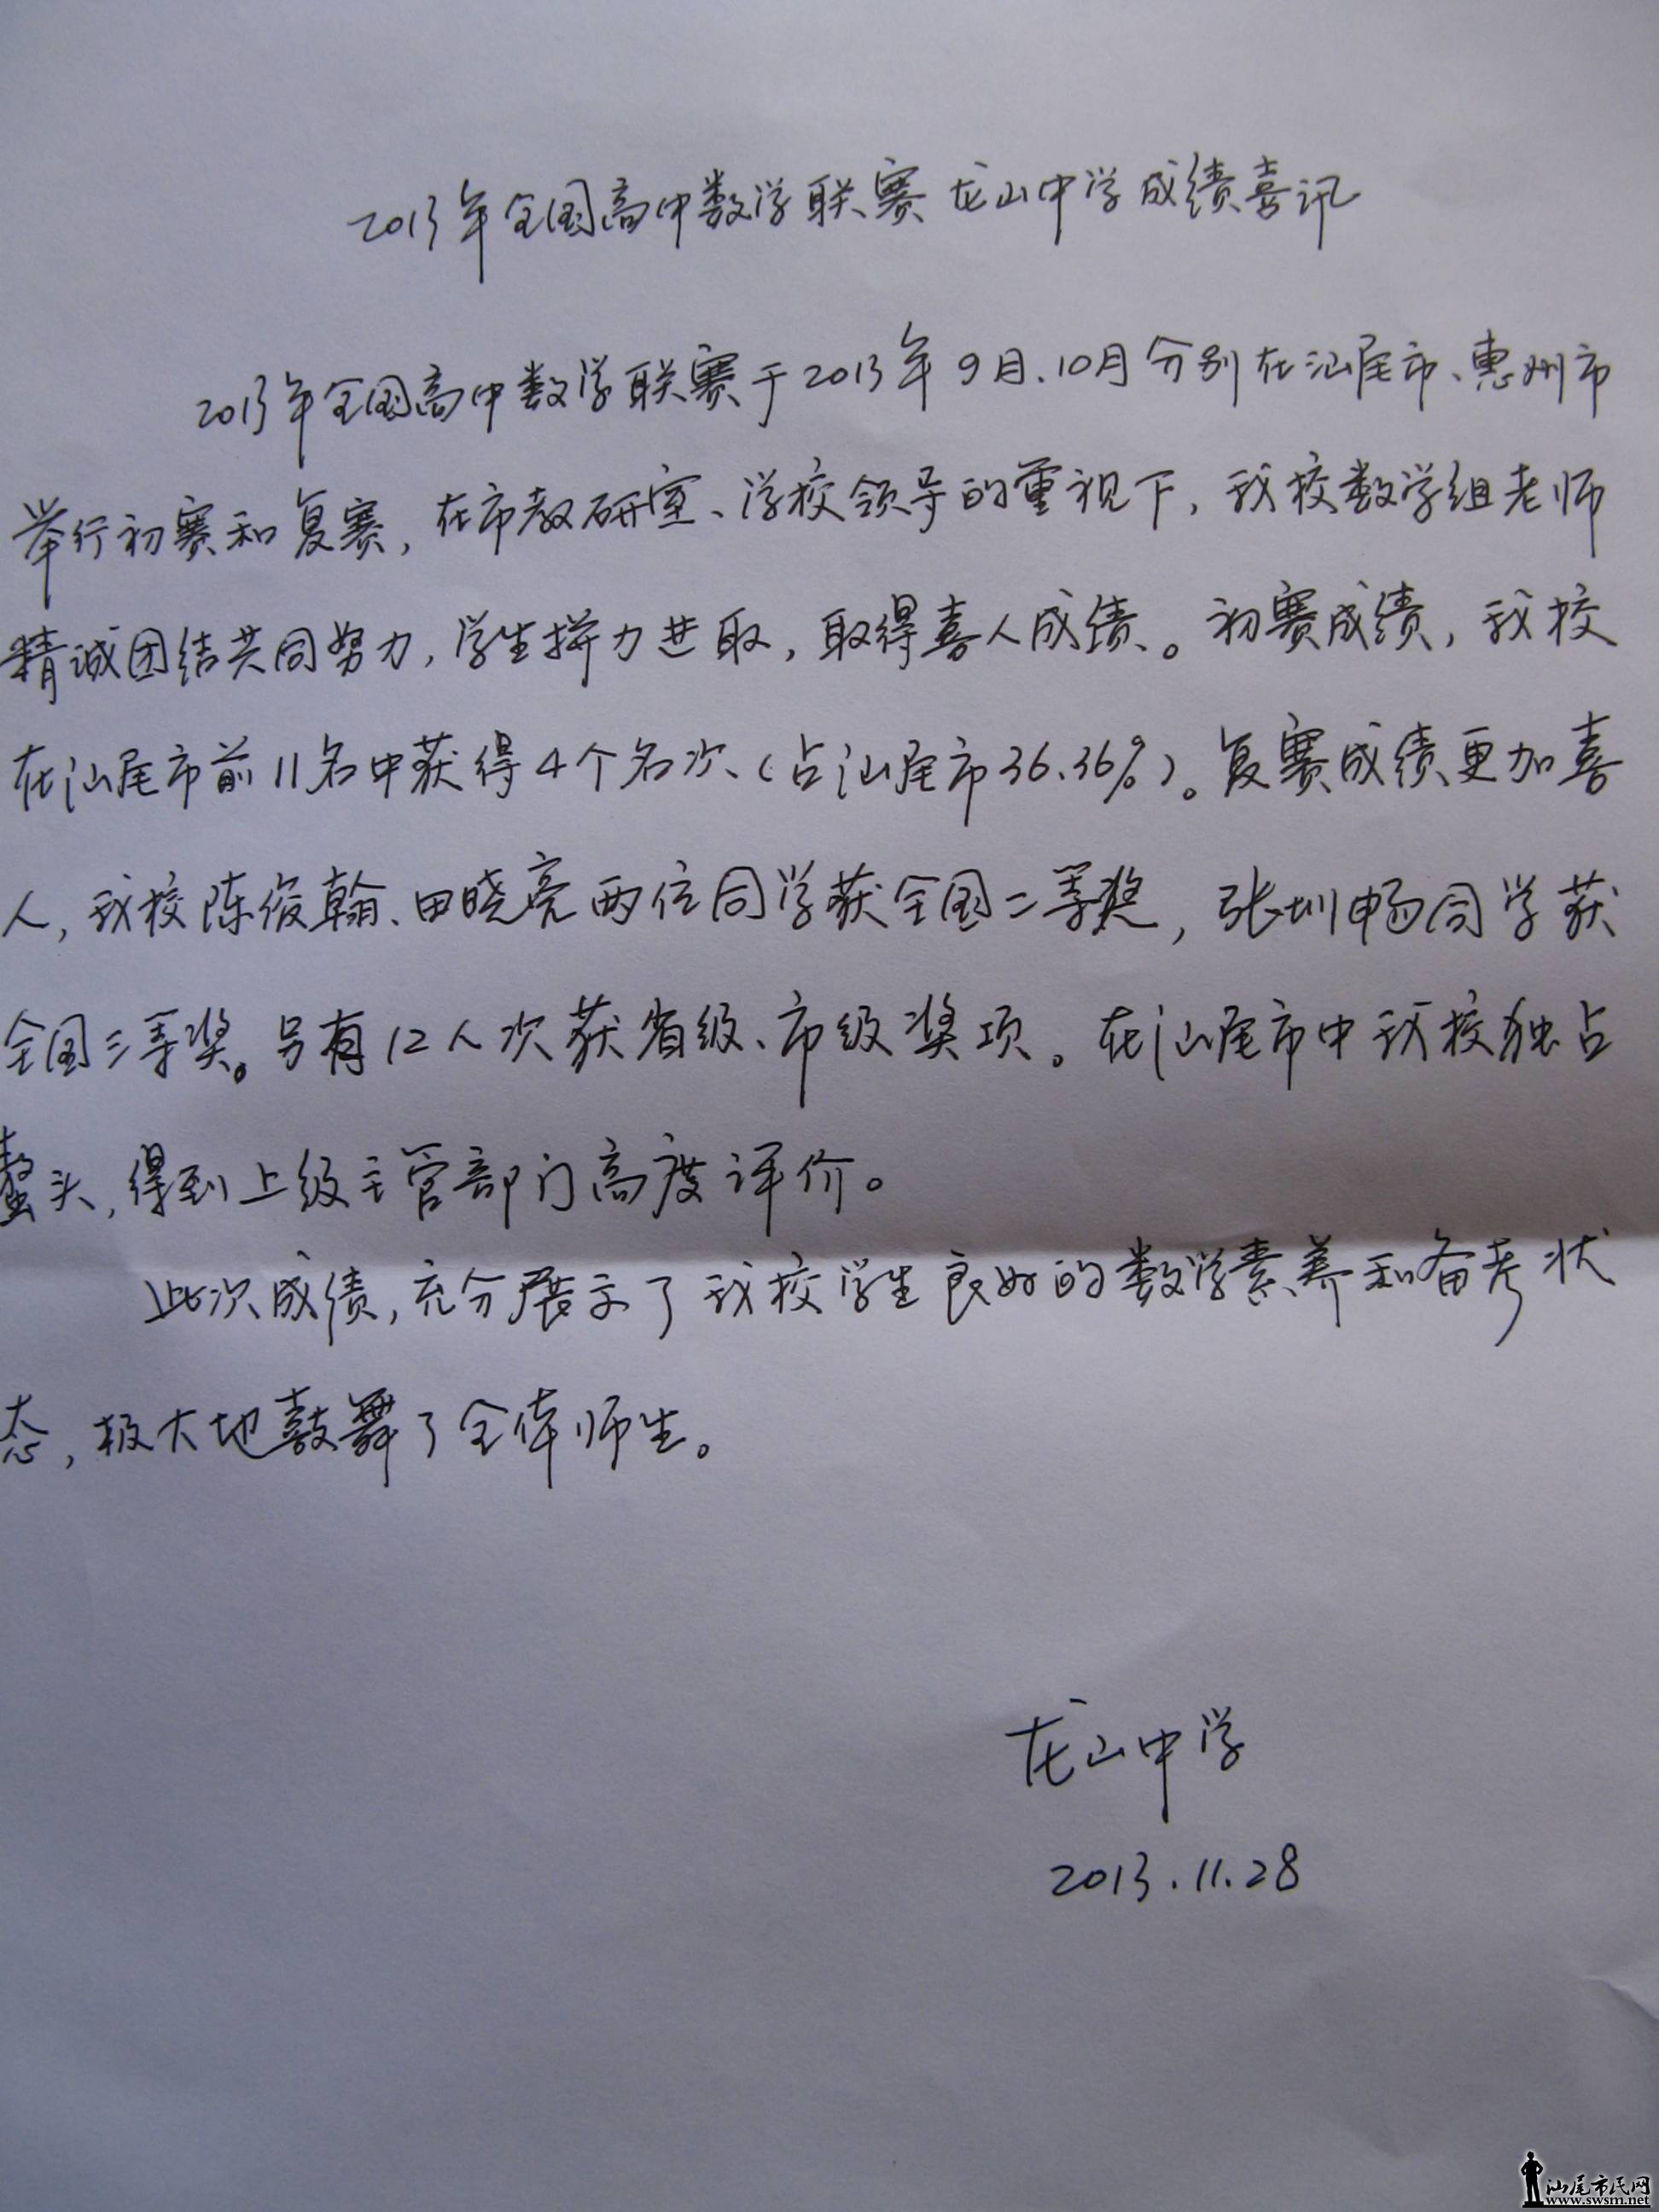 2013年全国高中数学联赛龙山中学成绩喜讯
2013年全国高中数学联赛于2013年9月、10月分别在汕尾市、惠州市
举行初赛和复赛,在市教研室、学校领导的重视下,我校数学组老师
精诚团结共同努力,学生拼力进取,取得喜人成绩、。初赛成绩,我校
在汕尾市前11名中获得4个名次、(占汕尾市36.36%)。复赛成绩更加喜
人,我校陈俊翰、田晓亮两位同学获全国二等奖,张圳畅同学获
全国三等奖。另有12人次获省级、市级奖项。在汕尾市中我校独占
鳌头,得到上级主管部门高度评价。
此次成绩,充分展示了我校学生良好的数学素养和备考状
态,极大地鼓舞了全体师生。
龙山中学
2013.11.28
汕尾市民网
www.swsm.net